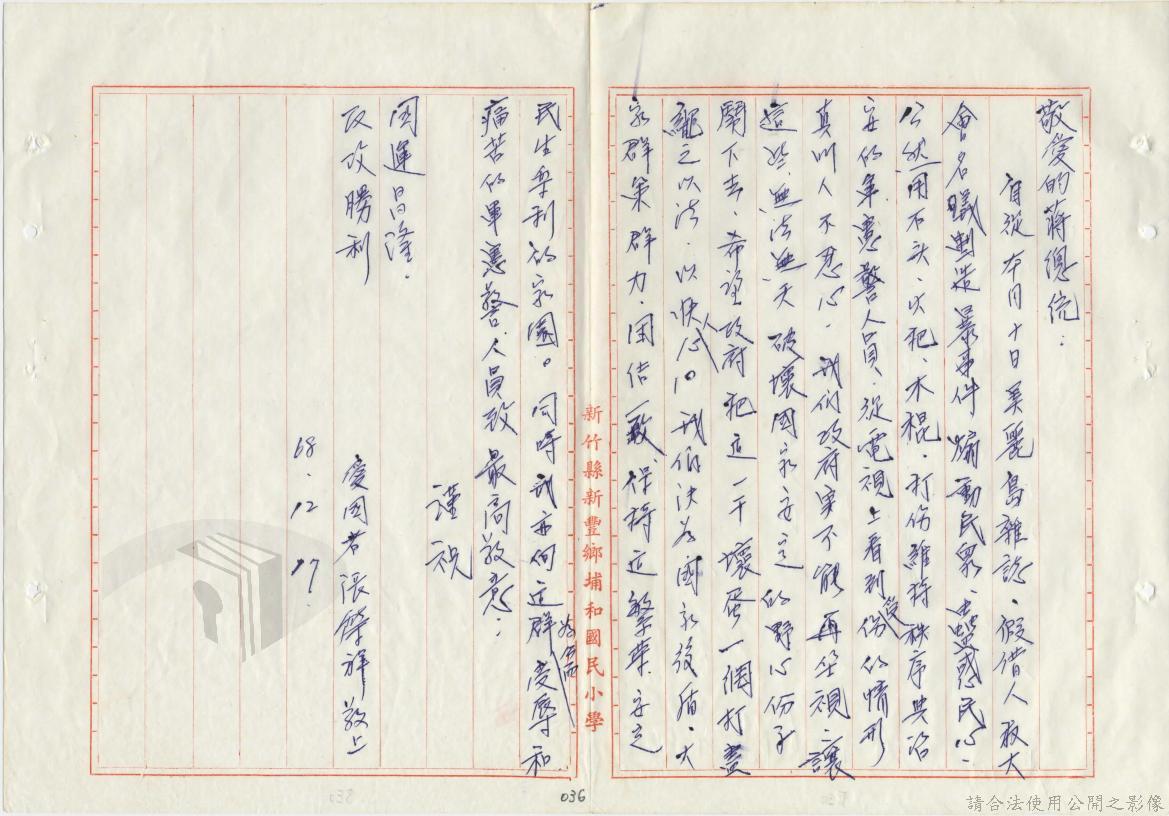 敬愛的蔣總統：
自從本月十日美麗島雜誌、假借人权大
會名議製造暴事件煽動民眾、蠱惑民心、
公然用石头、火把、木棍、打伤維持秩序與治
安的軍憲警人員、從電視上看到受伤的情形
真叫人不忍心、我们政府实不能再坐視、讓
這些無法無天破壞国家安定的野心份子
鬧下去、希望政府把這一干壞蛋一網打盡
繩之以法、以快人心。我们決為國家後盾、大
家群策群力、团结一致、保持这繁荣安定
民生乐利的家園。同時我亦向这群為国而受辱和
痛苦的軍憲警人員致最高敬意：
謹祝
国運昌隆．
反攻勝利
愛国者張榮祥敬上
68．12．17．
新竹縣新豐鄉埔和國民小學
036
請合法使用公開之影像